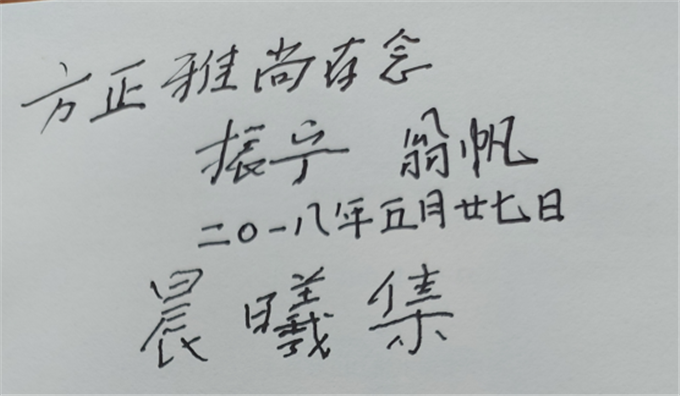 方正雅尚存念
振宁 翁帆
二〇一八年五月廿七日
晨曦集